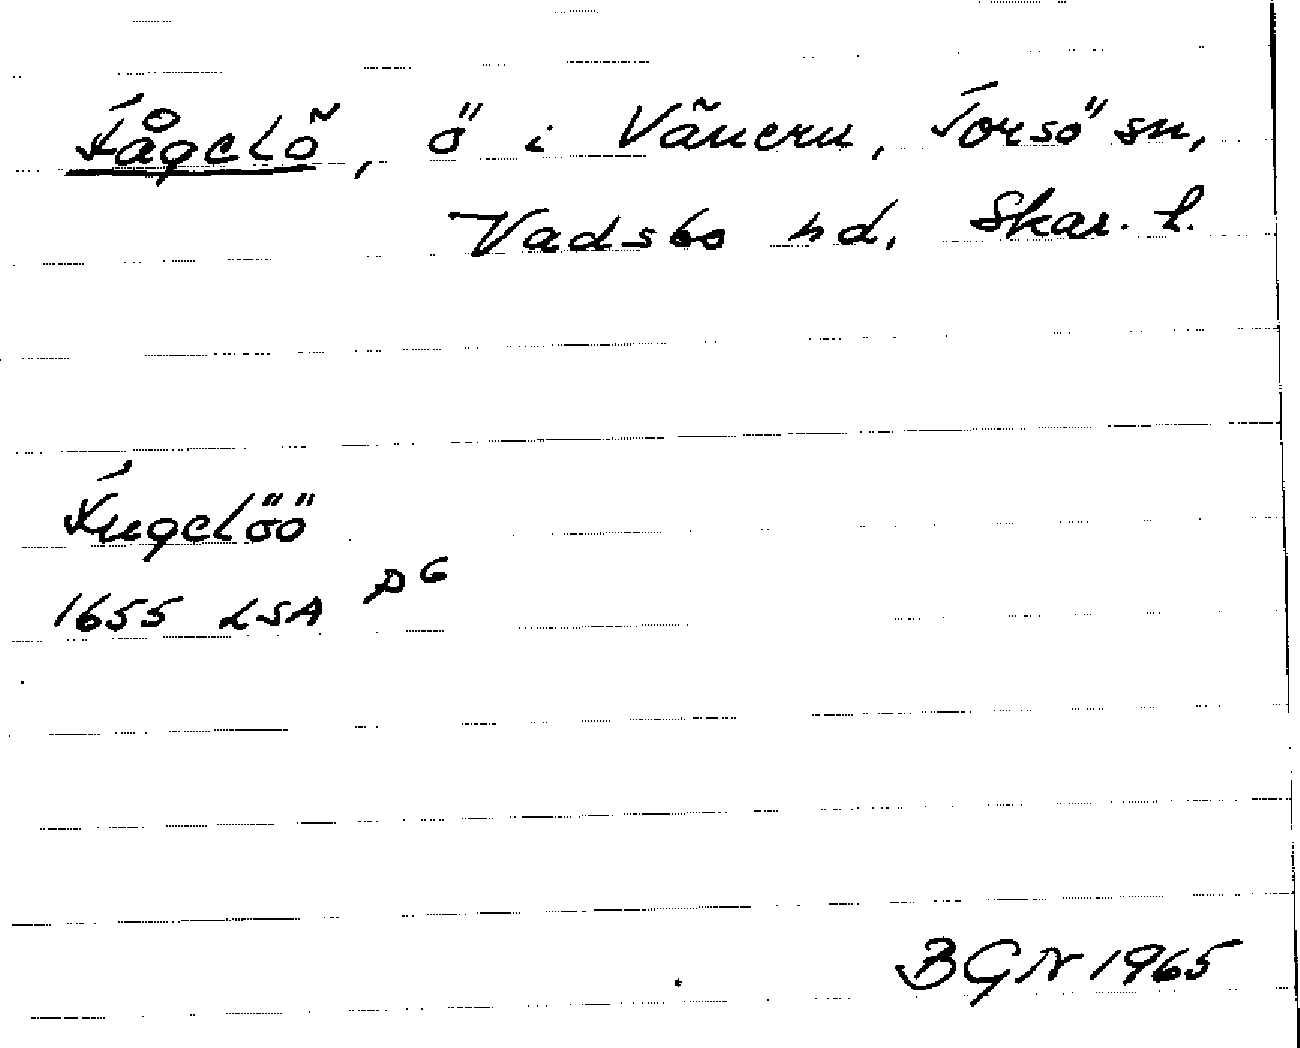 Fågelö, ö i Vänern, Torsö sn,
Vadsbo hd, Skar. l.
Fugelöö
1655 LSA P6
BGN 1965